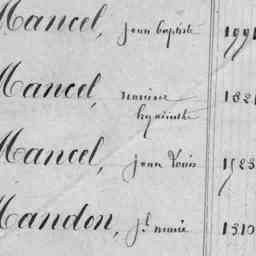 Mancel, jean baptiste 1991
Mancel, narcisse 1821
hyacinthe
Mancel, jean Louis 1523
Mandon, jh marie 1510